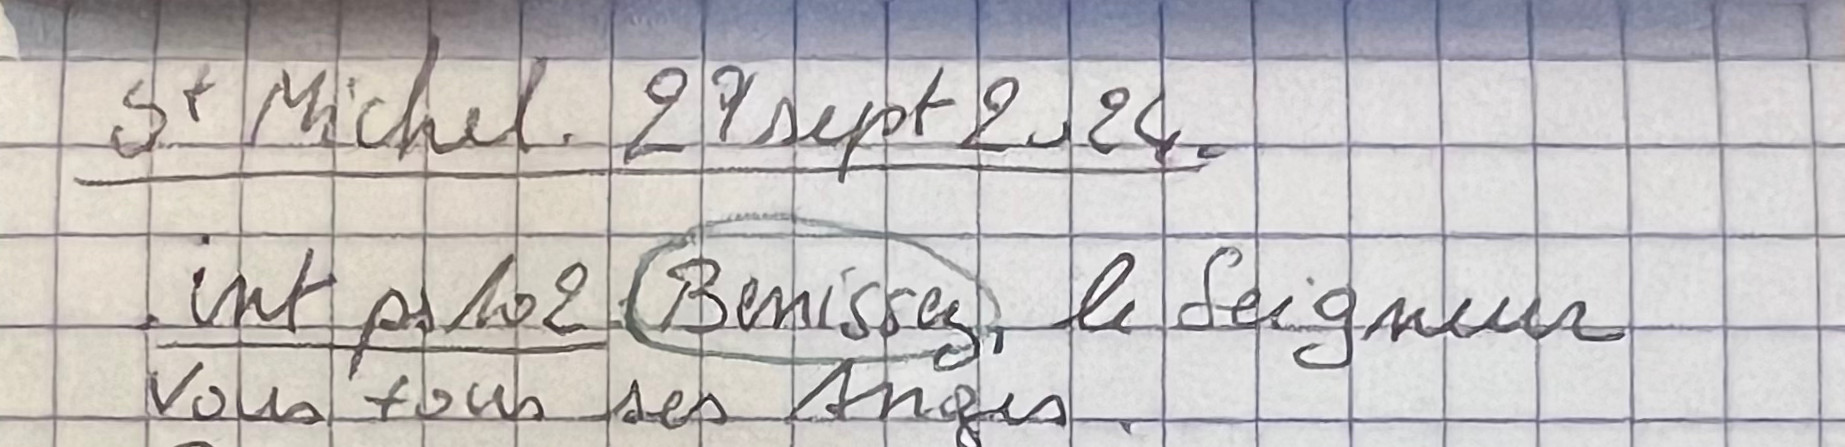 St Michel. 29 sept 2024.
int ps 102 Benissez, le Seigneur
Vous tous ses Anges.